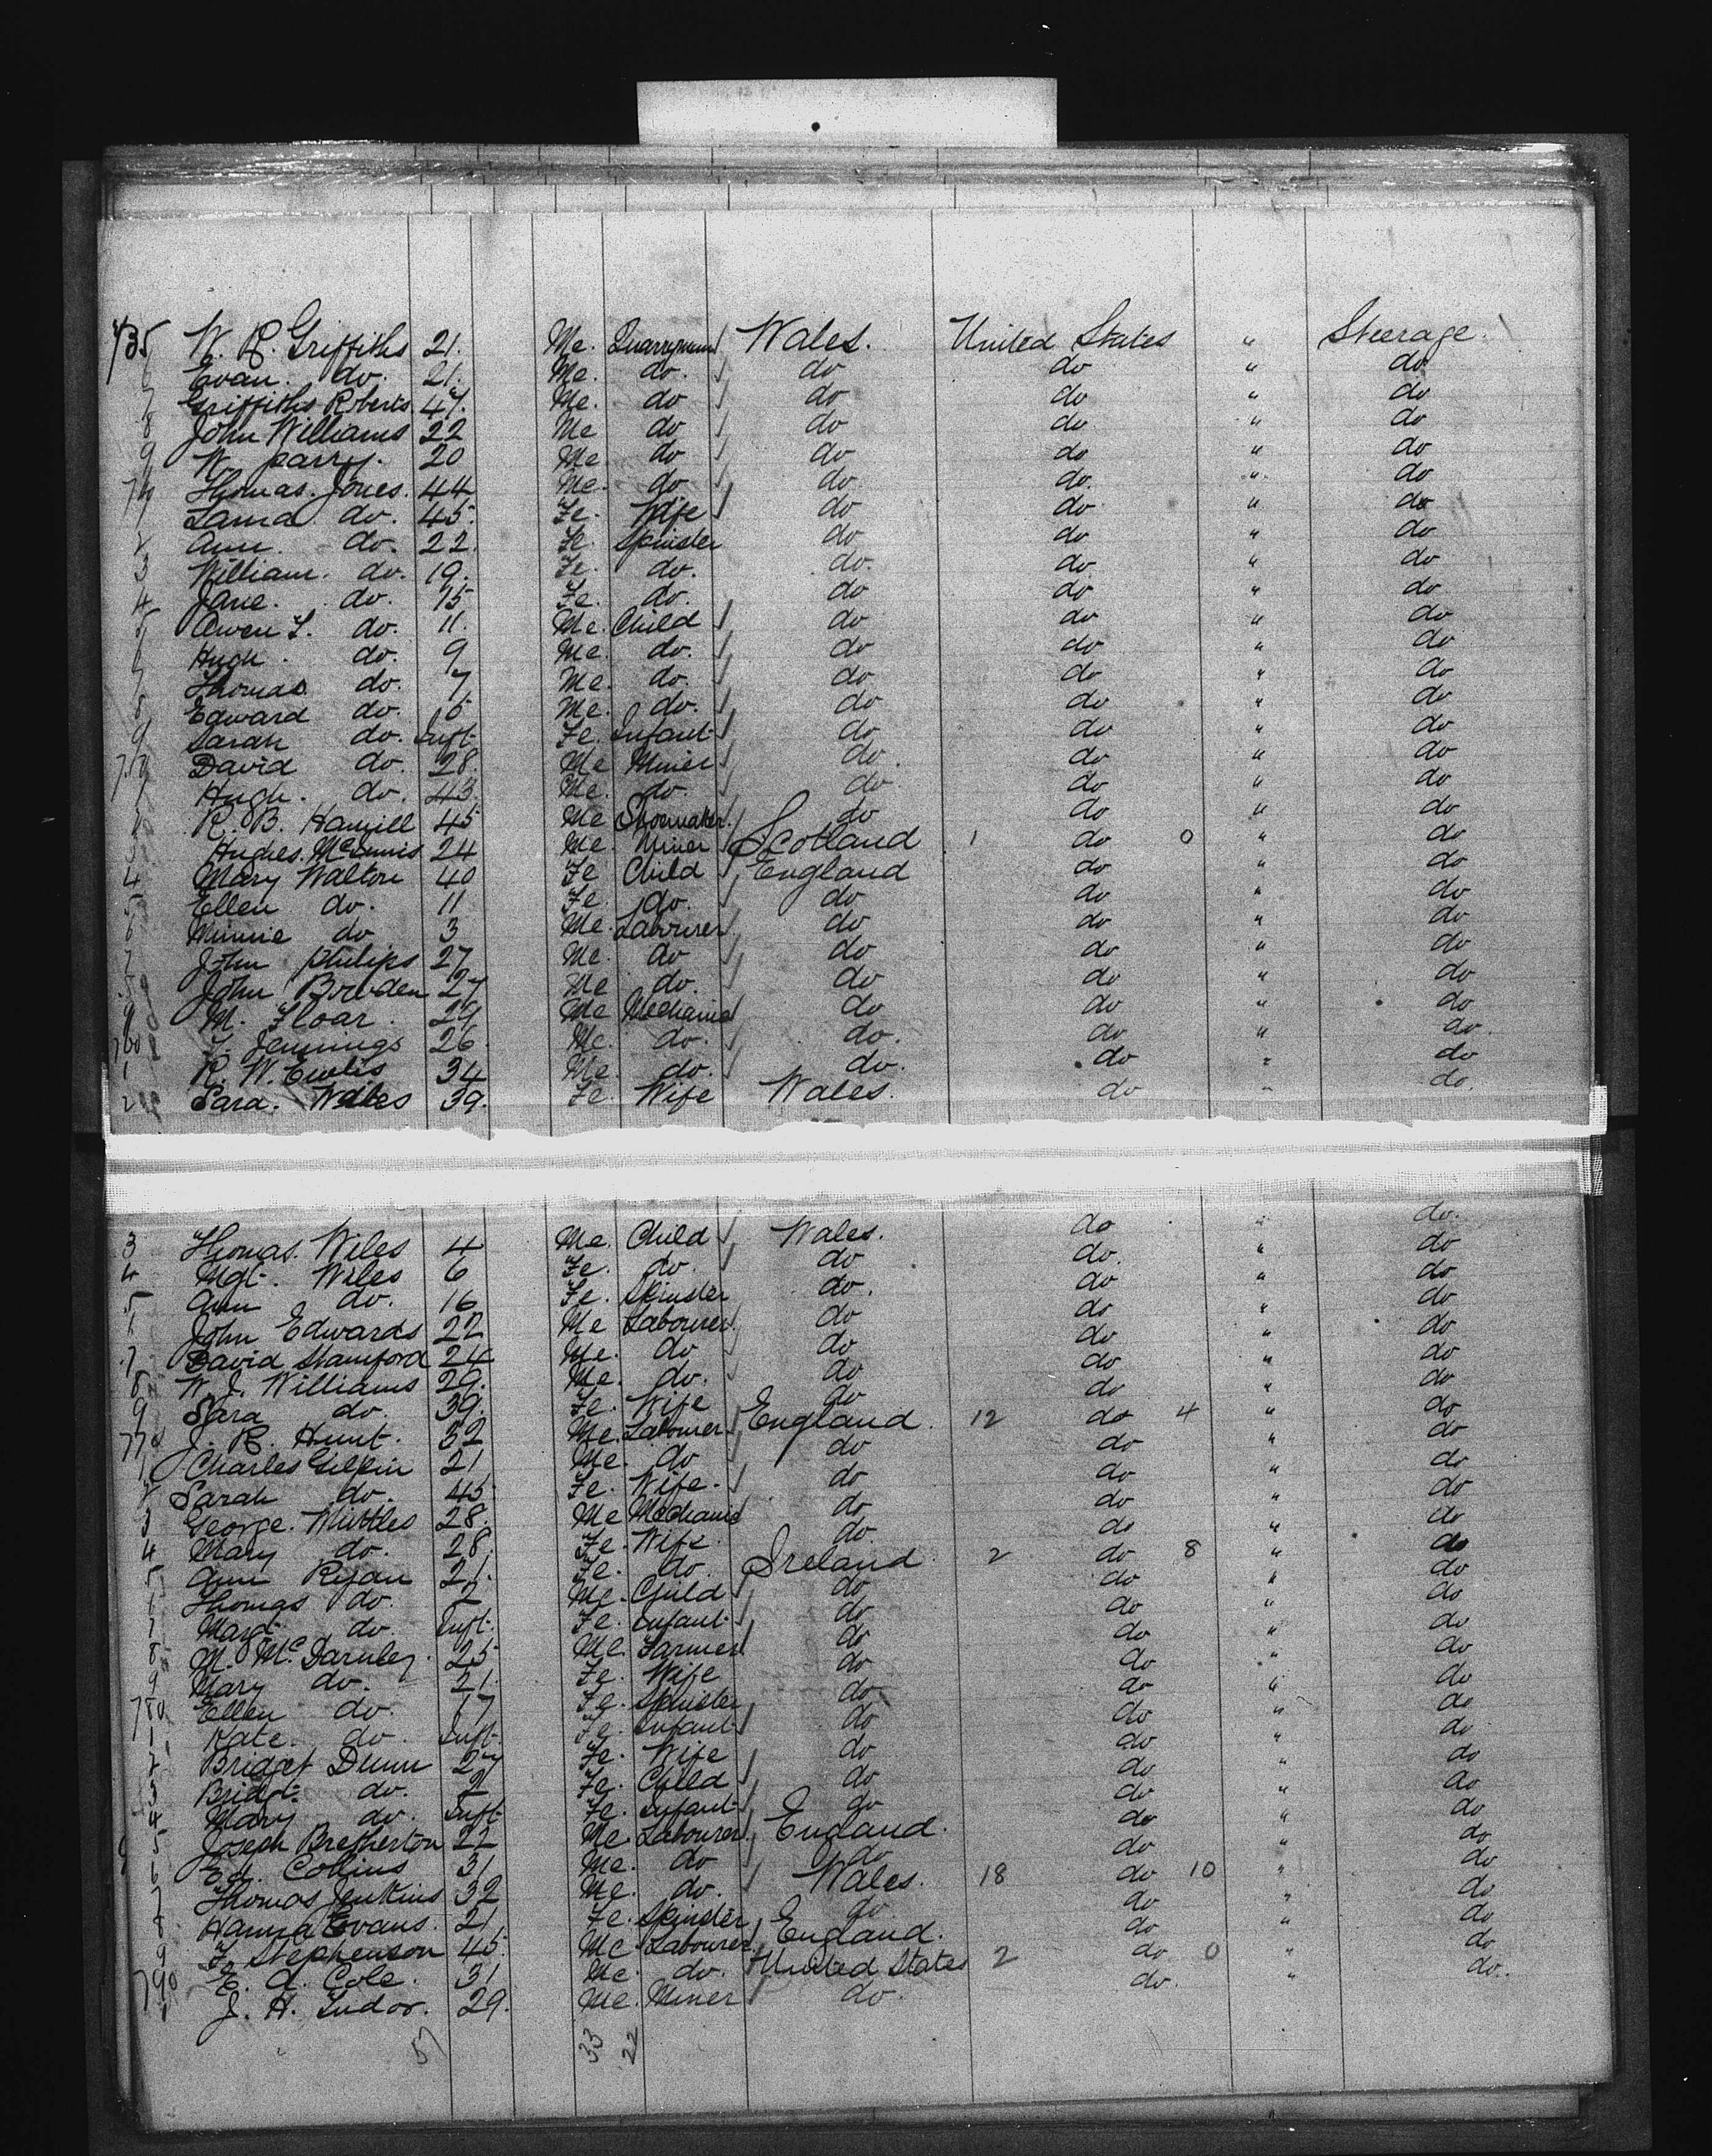 735 W. R. Griffiths 21. Me. Quarryman Wales. United States " Steerage.
6 Evan. do. 21. Me. do. do do " do
7 Griffiths Roberts. 47. Me. do do do " do
8 John Williams 22 Me do do do " do
9 W. parry. 20 Me do do do " do
74 Thomas. Jones. 44 Me. do do do. " do
Laura do. 45. Fe. Wife do do " do
2 Ann. do. 22. Fe. Spinster do do " do
3 William. do. 19. Fe. do. do. do " do
4 Jane. do. 15 Fe. do. do do " do
5 Owen T. do. 11. Me. Child do do " do
6 Hugh. do. 9 Me. do. do do " do
7 Thomas do. 7 Me. do. do do " do
8 Edward do. 5 Me. do. do do " do
9 Sarah do. Inft. Fe. Infant do do " do
David do. 28. Me Miner do. do " do
Hugh. do. 43. Me. do. do do " do
R. B. Hamill 45 Me Shoemaker. do do " do
3 Hughes. 24 Me. Miner Scotland 1 do 0 " do
4 Mary Walton 40 Fe Child England do " do
5 Ellen do. 11 Fe. do. do do " do
6 Minnie do 3 Me. Labourer do do " do
7 John philips 27 Me. do do do " do
8 John Bowden 27 Me do. do do " do
9 M. Floar. 29 Me Mechanic do do " do
760 Jennings 26. Me. do. do. do " do.
1 R. W. 34 Me. do. do. do " do
2 Sara. Wiles 39. Fe. Wife Wales. do " do
3 Thomas. Wiles 4 Me. Child Wales. do " do.
4 Mgt. Wiles 6 Fe. do. do do. " do
5 Ann do. 16 Fe. Spinster do. do " do
6 John Edwards 22 Me Labourer. do do " do
7 David Stamford 24 Me. do do do " do
8 W. J. Williams 29. Me. do. do do " do
9 Sara do. 39. Fe. Wife do do " do
770 J. R. Hunt. 52 Me. Labourer England 12 do 4 " do
1 Charles Gilpin 21 Me. do do do " do
2 Sarah do. 45 Fe. Wife. do do " do
3 George. 28. Me Mechanic do do " do
4 Mary do. 28. Fe. Wife. do. do " do
5 Ann Ryan 21. Fe. do. Ireland. 2 do 8 " do
6 Thomas do. 2 Me. Child do do " do
7 Margt. do. Inft. Fe. Infant do do " do
8 M. McDarnley. 25 Me. Farmer do do " do
9 Mary do. 21. Fe. Wife do do " do
780 Ellen do. 17 Fe. Spinster do do " do
1 Kate. do. Inft. Fe. Infant do do " do
2 Bridget Dunn 27 Fe. Wife do do " do
3 Bridgt. do. 2 Fe. Child do do " do
4 Mary do. Inft Fe. Infant do do " do
5 Joseph Bretherton 22 Me. Labourer. England. do " do
6 Ed. Collins 31 Me. do do do " do
7 Thomas Jenkins 32 Me. do. Wales. 18 do 10 " do
8 Hanna Evans. 21 Fe. Spinster do do " do
9 F. Stephenson 45. Me Labourer. England. do " do
790 E. A. Cole. 31 Me. do. United States 2 do 0 " do
1 J. H. Tudor. 29. Me. Miner do. do. " do.
57 33 22